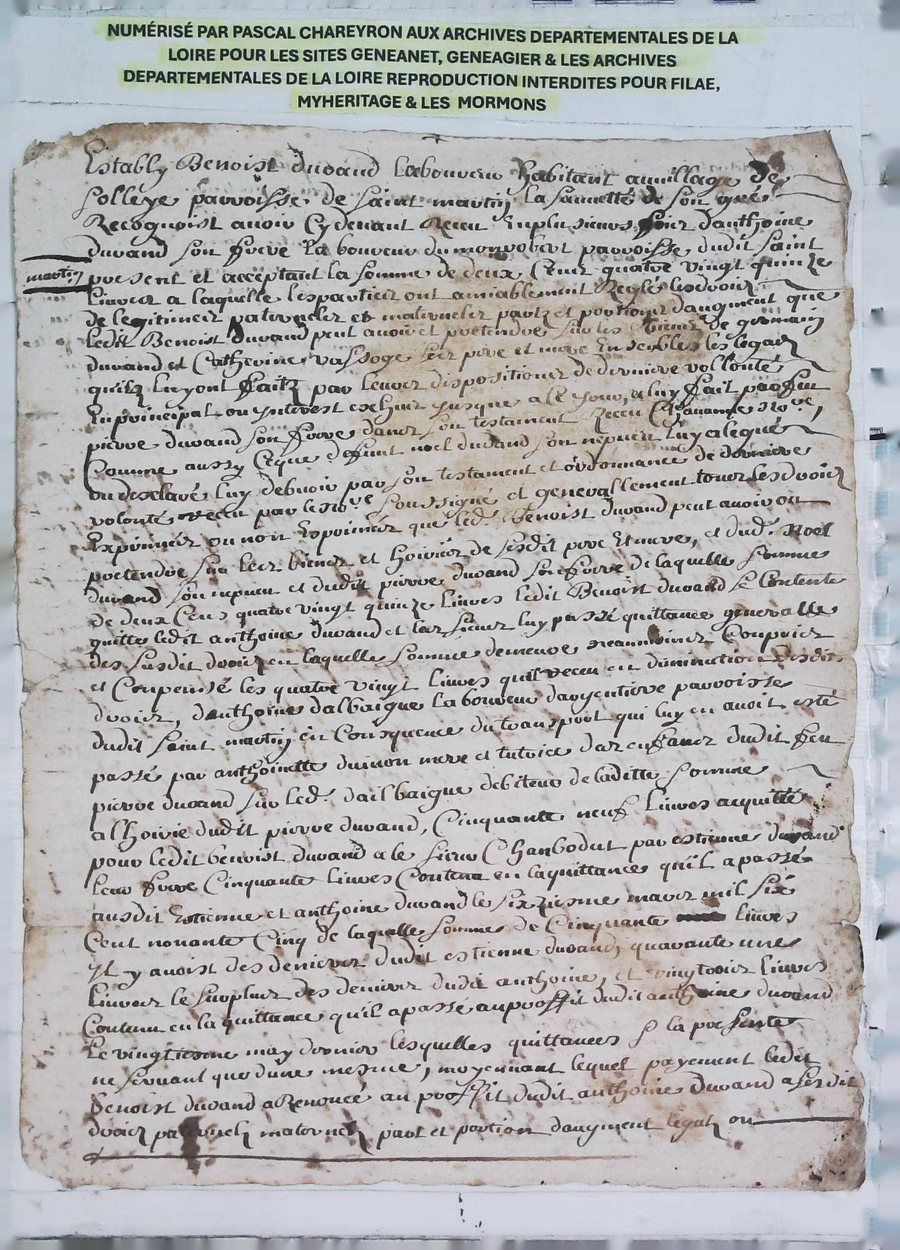 NUMÉRISÉ PAR PASCAL CHAREYRON AUX ARCHIVES DEPARTEMENTALES DE LA
LOIRE POUR LES SITES GENEANET, GENEAGIER & LES ARCHIVES
DEPARTEMENTALES DE LA LOIRE REPRODUCTION INTERDITES POUR FILAE,
MYHERITAGE & LES MORMONS
Estably Benoist durand laboureur habitant au village de
Solleye parroisse de saint martin la sauvetté de son gré
Recognoist avoir Cydevant Receu En plusieurs fois d'anthoine
durand son frere laboureur du parroisse dudit saint
martin
present et acceptant la somme de deux Cens quatre vingt quinze
livres a laquelle les parties ont amiablement Reglé les droix
de legitimes paternelz et maternelz partz et portions d'augment que
ledit Benoist durand peut avoir et pretendre sur les biens de germain
durand et Catherine vassoge ses pere et mere Ensembles les legatz
quilz luy ont faitz par leurs dispositions de derniere vollonté
En principal ou ynterest escheus jusque a Ce jour, luy fait par feu
pierre durand son frere dans son testament Receu no.re,
Comme aussy Ce que deffunt noel durand son nepveu luy a legué
ou desclaré luy debvoir par son testament et ordonnance de derniere
volonté receu par le no.re soussigné et generallement tous les droix
Exprimés ou non Exprimés que led. Benoist durand peut avoir ou
pretendre sur les biens et hoiries de sesdit pere Et mere, et dud. Noel
durand son nepveu et dudit pierre durand son frere de laquelle somme
de deux Cens quatre vingt quinze livres ledit Benoist durand se Contente
quitte ledit anthoine durand et les siens luy passe quittance generalle
des susdit droix en laquelle somme demeure neanmoins Compris
et Compensé les quatre vingt livres quil receu en diminution desdit
droix, danthoine dalbaigue laboureur dargentiere parroisse
dudit saint martin en Consequence du transport qui luy en avoit esté
passé par anthoinette dumon mere et tutrice des enfans dudit feu
pierre durand sur led. dailbaigue debiteur de laditte somme
a lhoirie dudit pierre durand, Cinquante neuf livres acquitté
pour ledit benoist durand a le sieur Chambodut par estienne durand
leur frere Cinquante livres Contenu en la quittance quil a passé
ausdit Estienne et anthoine durand le sixiesme mars mil six
Cent nonante Cinq de laquelle somme de Cinquante livres
Il y avoist des deniers dudit estienne durand, quarante une
livres le surplus des deniers dudit anthoine, et vingt trois livres
Contenu en la quittance quil a passé au proffit dudit anthoine durand
le vingtiesme may dernier lesquelles quittances & la presente
ne servant que dune mesme, moyennant lequel payement ledit
benoist durand a Renoncé au proffit dudit anthoine durand a sesdit
droix paternels maternels part et portion daugment legatz ou